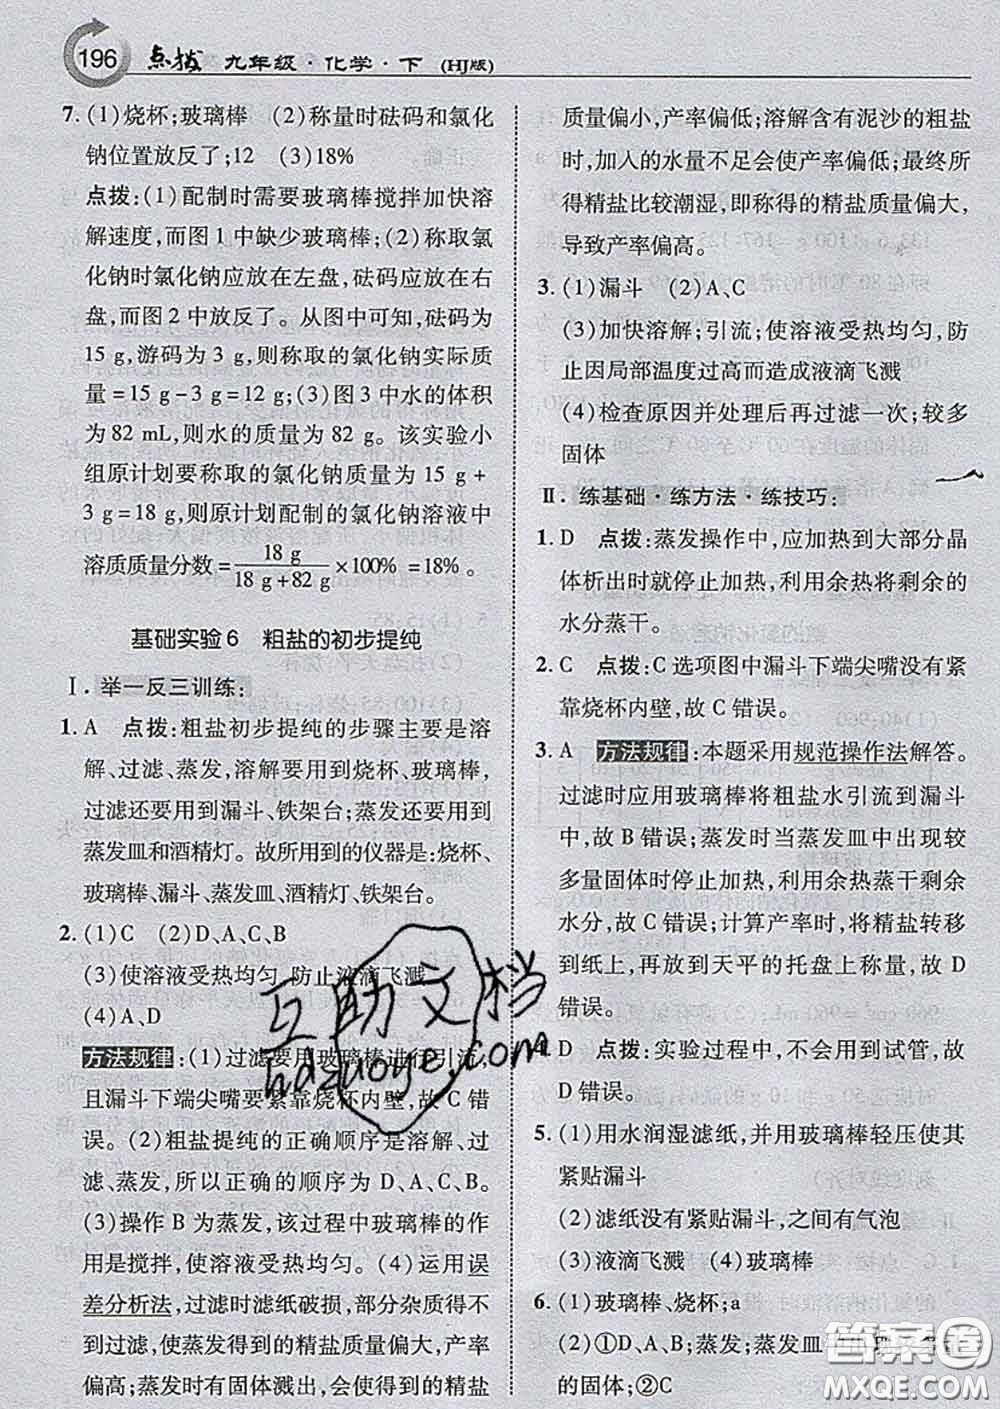 196 点拨 九年级·化学·下 (HJ版)
7. (1)烧杯;玻璃棒 (2)称量时砝码和氯化
钠位置放反了;12 (3)18%
点拨:(1)配制时需要玻璃棒搅拌加快溶
解速度,而图1中缺少玻璃棒;(2)称取氯
化钠时氯化钠应放在左盘,砝码应放在右
盘,而图2中放反了。从图中可知,砝码为
15 g,游码为3 g,则称取的氯化钠实际质
量=15 g-3 g=12 g;(3)图3中水的体积
为82 mL,则水的质量为82 g。该实验小
组原计划要称取的氯化钠质量为15 g+
3 g=18 g,则原计划配制的氯化钠溶液中
溶质质量分数=18 g/(18 g+82 g)×100%=18%。
基础实验6 粗盐的初步提纯
Ⅰ.举一反三训练:
1. A 点拨:粗盐初步提纯的步骤主要是溶
解、过滤、蒸发,溶解要用到烧杯、玻璃棒,
过滤还要用到漏斗、铁架台;蒸发还要用到
蒸发皿和酒精灯。故所用到的仪器是:烧杯、
玻璃棒、漏斗、蒸发皿、酒精灯、铁架台。
2. (1)C (2)D、A、C、B
(3)使溶液受热均匀,防止液滴飞溅
(4)A、D
方法规律:(1)过滤要用玻璃棒进行引流,
且漏斗下端尖嘴要紧靠烧杯内壁,故C错
误。(2)粗盐提纯的正确顺序是溶解、过
滤、蒸发,所以正确的顺序为D、A、C、B。
(3)操作B为蒸发,该过程中玻璃棒的作
用是搅拌,使溶液受热均匀。(4)运用误
差分析法,过滤时滤纸破损,部分杂质得不
到过滤,使蒸发后得到的精盐质量偏大,产率
偏高;蒸发时有固体溅出,会使得到的精盐
质量偏小,产率偏低;溶解含有泥沙的粗盐
时,加入的水量不足会使产率偏低;最终所
得精盐比较潮湿,即称得的精盐质量偏大,
导致产率偏高。
3. (1)漏斗 (2)A、C
(3)加快溶解;引流;使溶液受热均匀,防
止因局部温度过高而造成液滴飞溅
(4)检查原因并处理后再过滤一次;较多
固体
Ⅱ.练基础·练方法·练技巧:
1. D 点拨:蒸发操作中,应加热到大部分晶
体析出时就停止加热,利用余热将剩余的
水分蒸干。
2. C 点拨:C选项图中漏斗下端尖嘴没有紧
靠烧杯内壁,故C错误。
3. A 方法规律:本题采用规范操作法解答。
过滤时应用玻璃棒将粗盐水引流到漏斗
中,故B错误;蒸发时当蒸发皿中出现较
多量固体时停止加热,利用余热蒸干剩余
水分,故C错误;计算产率时,将精盐转移
到纸上,再放到天平的托盘上称量,故D
错误。
4. D 点拨:实验过程中,不会用到试管,故
D错误。
5. (1)用水润湿滤纸,并用玻璃棒轻压使其
紧贴漏斗
(2)滤纸没有紧贴漏斗,之间有气泡
(3)液滴飞溅 (4)玻璃棒
6. (1)玻璃棒、烧杯;a
(2)①D、A、B;蒸发;蒸发皿中出现较多
的固体;②C
互助文档
hdzuoye.com
答案圈
MXQE.COM